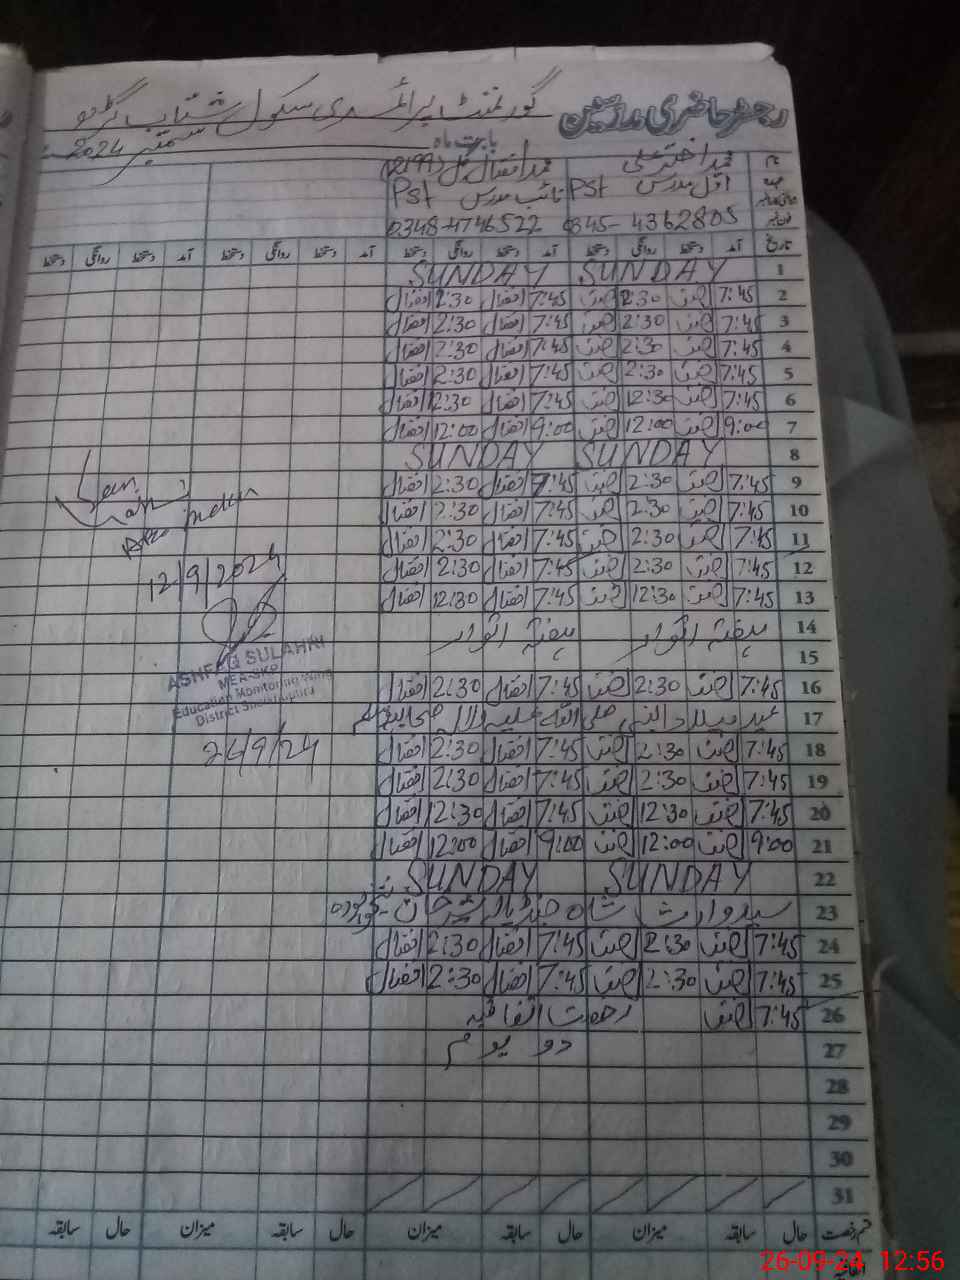 رجسٹر حاضری مدرسین گورنمنٹ پرائمری سکول شتاب گڑھ
بابت ماہ ستمبر 2024
محمد اختر علی
اول مدرس PST نائب مدرس PST
0345-4362805 0348-4746522
تاریخ آمد دستخط روانگی دستخط آمد دستخط روانگی دستخط آمد دستخط روانگی دستخط آمد دستخط روانگی دستخط
1 SUNDAY SUNDAY
2 7:45 2:30 7:45 افضال 2:30 افضال
3 7:45 2:30 7:45 افضال 2:30 افضال
4 7:45 2:30 7:45 افضال 2:30 افضال
5 7:45 2:30 7:45 افضال 2:30 افضال
6 7:45 12:30 7:45 افضال 12:30 افضال
7 9:00 12:00 9:00 افضال 12:00 افضال
8 SUNDAY SUNDAY
9 7:45 2:30 7:45 افضال 2:30 افضال
10 7:45 2:30 7:45 افضال 2:30 افضال
11 7:45 2:30 7:45 افضال 2:30 افضال
12 7:45 2:30 7:45 افضال 2:30 افضال
12/9/2024
13 7:45 12:30 7:45 افضال 12:30 افضال
14 ہفتہ اتوار ہفتہ اتوار
15
ASHFAQ SULAHRI
MEA-SKP
Education Monitoring Wing
District Sheikhupura
16 7:45 2:30 7:45 افضال 2:30 افضال
17 عید میلاد النبی صلی اللہ علیہ
18 7:45 2:30 7:45 افضال 2:30 افضال
24/9/24
19 7:45 2:30 7:45 افضال 2:30 افضال
20 7:45 12:30 7:45 افضال 12:30 افضال
21 9:00 12:00 9:00 افضال 12:00 افضال
22 SUNDAY SUNDAY
23 سید وارث شاہ
24 7:45 2:30 7:45 افضال 2:30 افضال
25 7:45 2:30 7:45 افضال 2:30 افضال
26 7:45 رخصت اتفاقیہ
27 دو یوم
28
29
30
31
قسم رخصت حال سابقہ میزان حال سابقہ میزان حال سابقہ میزان حال سابقہ
اتفاقیہ
26-09-24 12:56